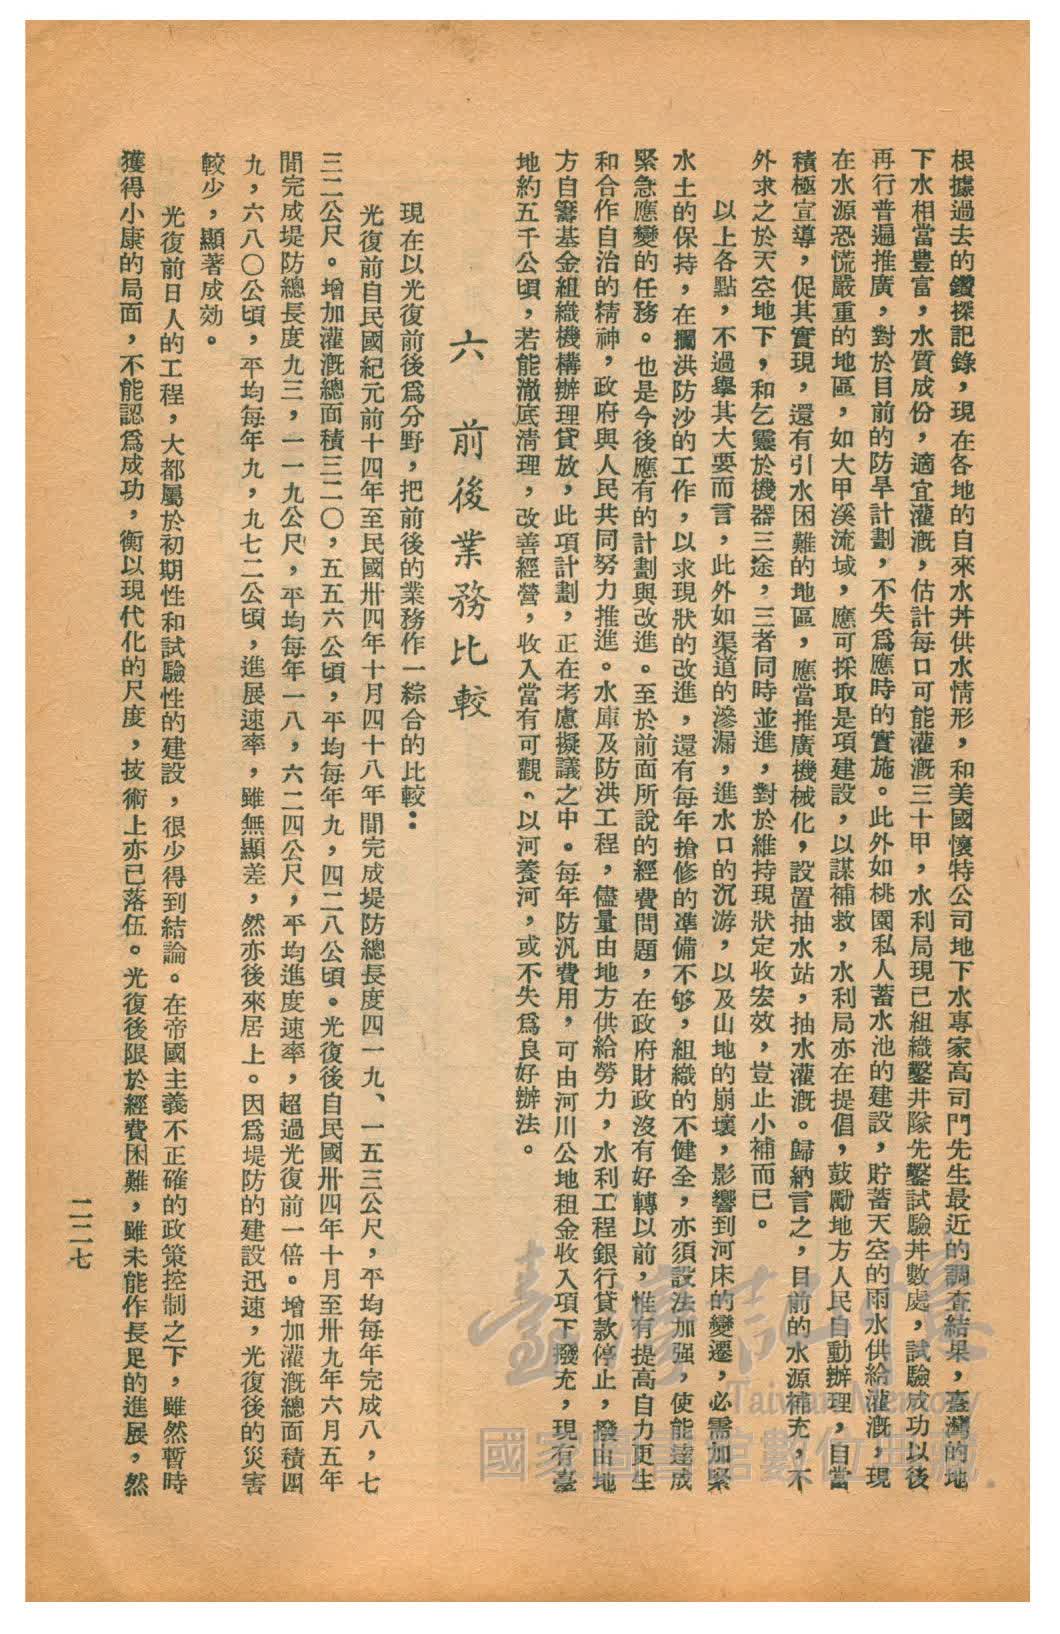 根據過去的鑽探記錄，現在各地的自來水井供水情形，和美國懷特公司地下水專家高司門先生最近的調查結果，臺灣的地
下水相當豐富，水質成份，適宜灌漑，估計每口可能灌漑三十甲，水利局現已組織鑿井隊先鑿試驗井數處，試驗成功以後
再行普遍推廣，對於目前的防旱計劃，不失爲應時的實施。此外如桃園私人蓄水池的建設，貯蓄天空的雨水供給灌漑，現
在水源恐慌嚴重的地區，如大甲溪流域，應可採取是項建設，以謀補救，水利局亦在提倡，鼓勵地方人民自動辦理，自當
積極宣導，促其實現，還有引水困難的地區，應當推廣機械化，設置抽水站，抽水灌漑。歸納言之，目前的水源補充，不
外求之於天空地下，和乞靈於機器三途，三者同時並進，對於維持現狀定收宏效，豈止小補而已。
以上各點，不過舉其大要而言，此外如渠道的滲漏，進水口的沉游，以及山地的崩壞，影響到河床的變遷，必需加緊
水土的保持，在攔洪防沙的工作，以求現狀的改進，還有每年搶修的準備不够，組織的不健全，亦須設法加强，使能達成
緊急應變的任務。也是今後應有的計劃與改進。至於前面所說的經費問題，在政府財政沒有好轉以前，惟有提高自力更生
和合作自治的精神，政府與人民共同努力推進。水庫及防洪工程，儘量由地方供給勞力，水利工程銀行貸款停止，撥由地
方自籌基金組織機構辦理貸放，此項計劃，正在考慮擬議之中。每年防汎費用，可由河川公地租金收入項下撥充，現有臺
地約五千公頃，若能澈底淸理，改善經營，收入當有可觀、以河養河，或不失爲良好辦法。
六　前後業務比較
現在以光復前後爲分野，把前後的業務作一綜合的比較：
光復前自民國紀元前十四年至民國卅四年十月四十八年間完成堤防總長度四一九、一五三公尺，平均每年完成八，七
三二公尺。增加灌漑總面積三二〇，五五六公頃，平均每年九，四二八公頃。光復後自民國卅四年十月至卅九年六月五年
間完成堤防總長度九三，一一九公尺，平均每年一八，六二四公尺，平均進度速率，超過光復前一倍。增加灌漑總面積四
九，六八〇公頃，平均每年九，九七二公頃，進展速率，雖無顯差，然亦後來居上。因爲堤防的建設迅速，光復後的災害
較少，顯著成効。
光復前日人的工程，大都屬於初期性和試驗性的建設，很少得到結論。在帝國主義不正確的政策控制之下，雖然暫時
獲得小康的局面，不能認爲成功，衡以現代化的尺度，技術上亦已落伍。光復後限於經費困難，雖未能作長足的進展，然
二二七
臺灣記憶
Taiwan Memory
國家圖書館數位典藏